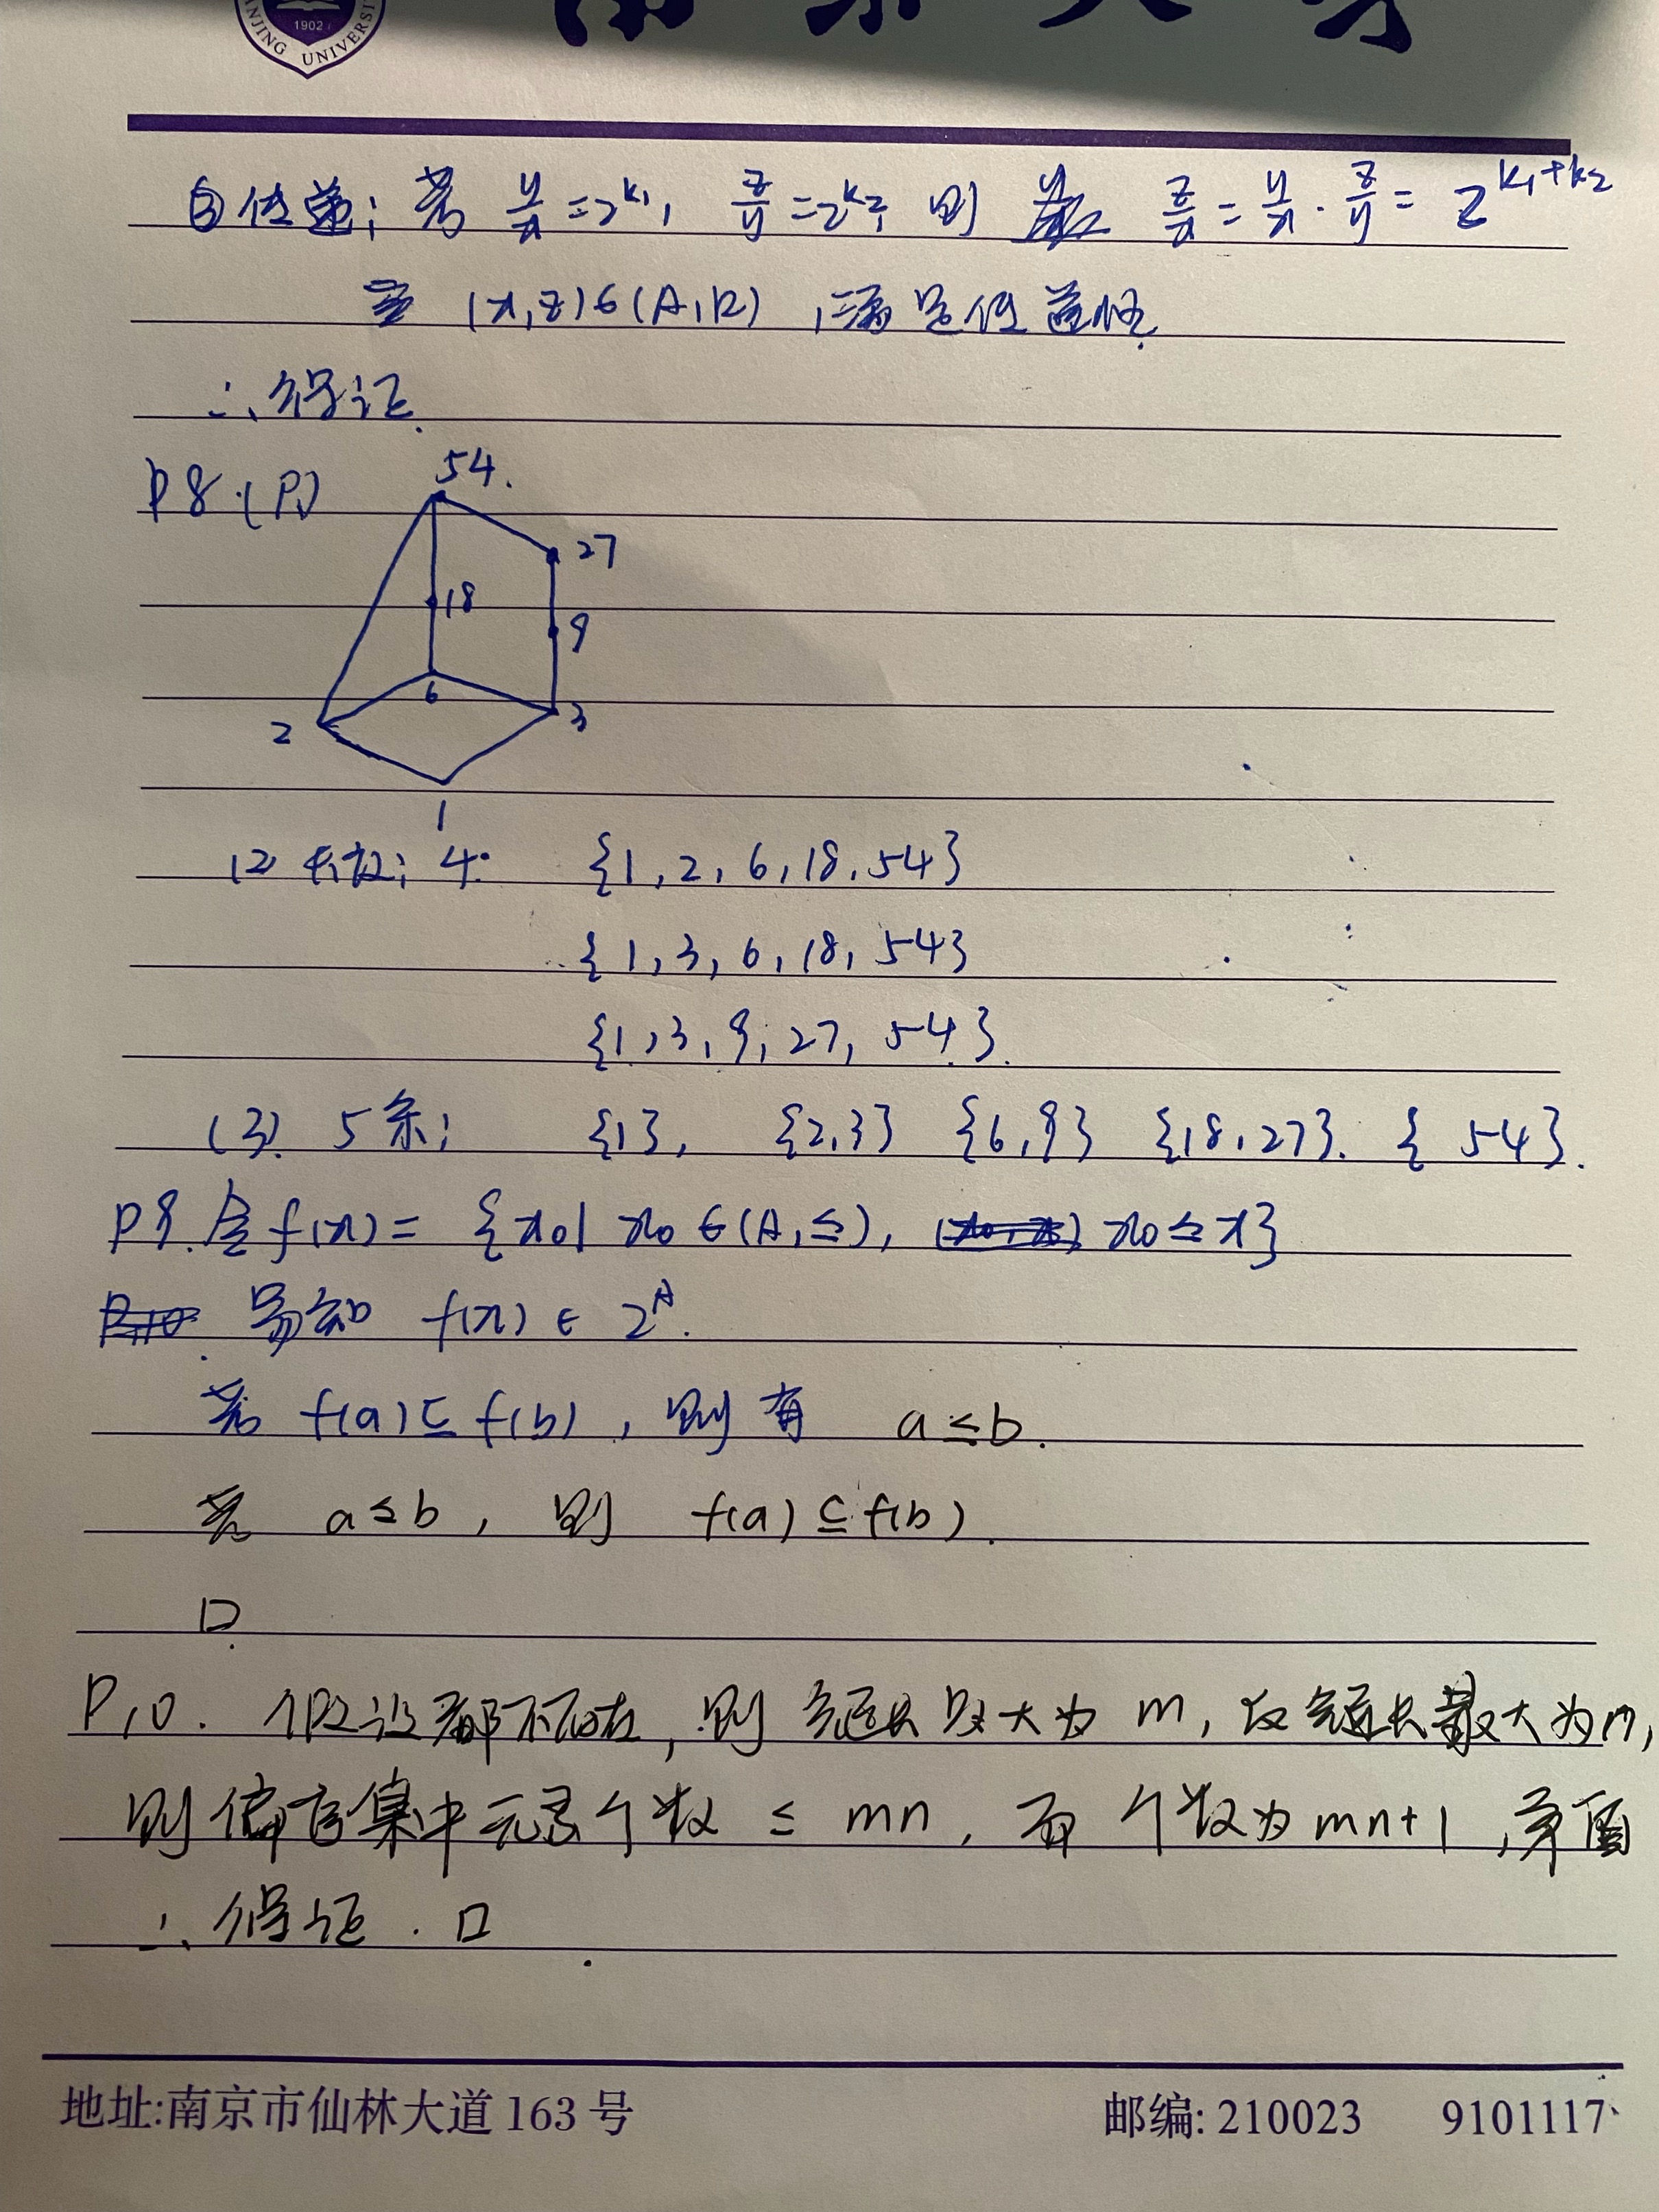 1902
NANJING UNIVERSITY
南京大学
③传递: 若 y/x = 2^k₁, z/y = 2^k₂, 则 z/x = y/x · z/y = 2^(k₁+k₂)
(x,z)∈(A,R), 满足传递性.
∴得证.
P8.(1)
54.
27
18
9
6
2
3
1
(2) 长为: 4. {1, 2, 6, 18, 54}
{1, 3, 6, 18, 54}
{1, 3, 9, 27, 54}.
(3). 5条: {1}, {2,3} {6,9} {18,27}. {54}.
P9. 令 f(x) = {x₀| x₀∈(A,≤), x₀≤x}
易知 f(x) ∈ 2^A.
若 f(a)⊆f(b), 则有 a≤b.
若 a≤b, 则 f(a)⊆f(b).
□
P10. 假设都不存在, 则链长最大为 m, 反链长最大为n,
则偏序集中元素个数 ≤ mn, 而个数为mn+1, 矛盾
∴得证. □
地址:南京市仙林大道163号 邮编: 210023 9101117